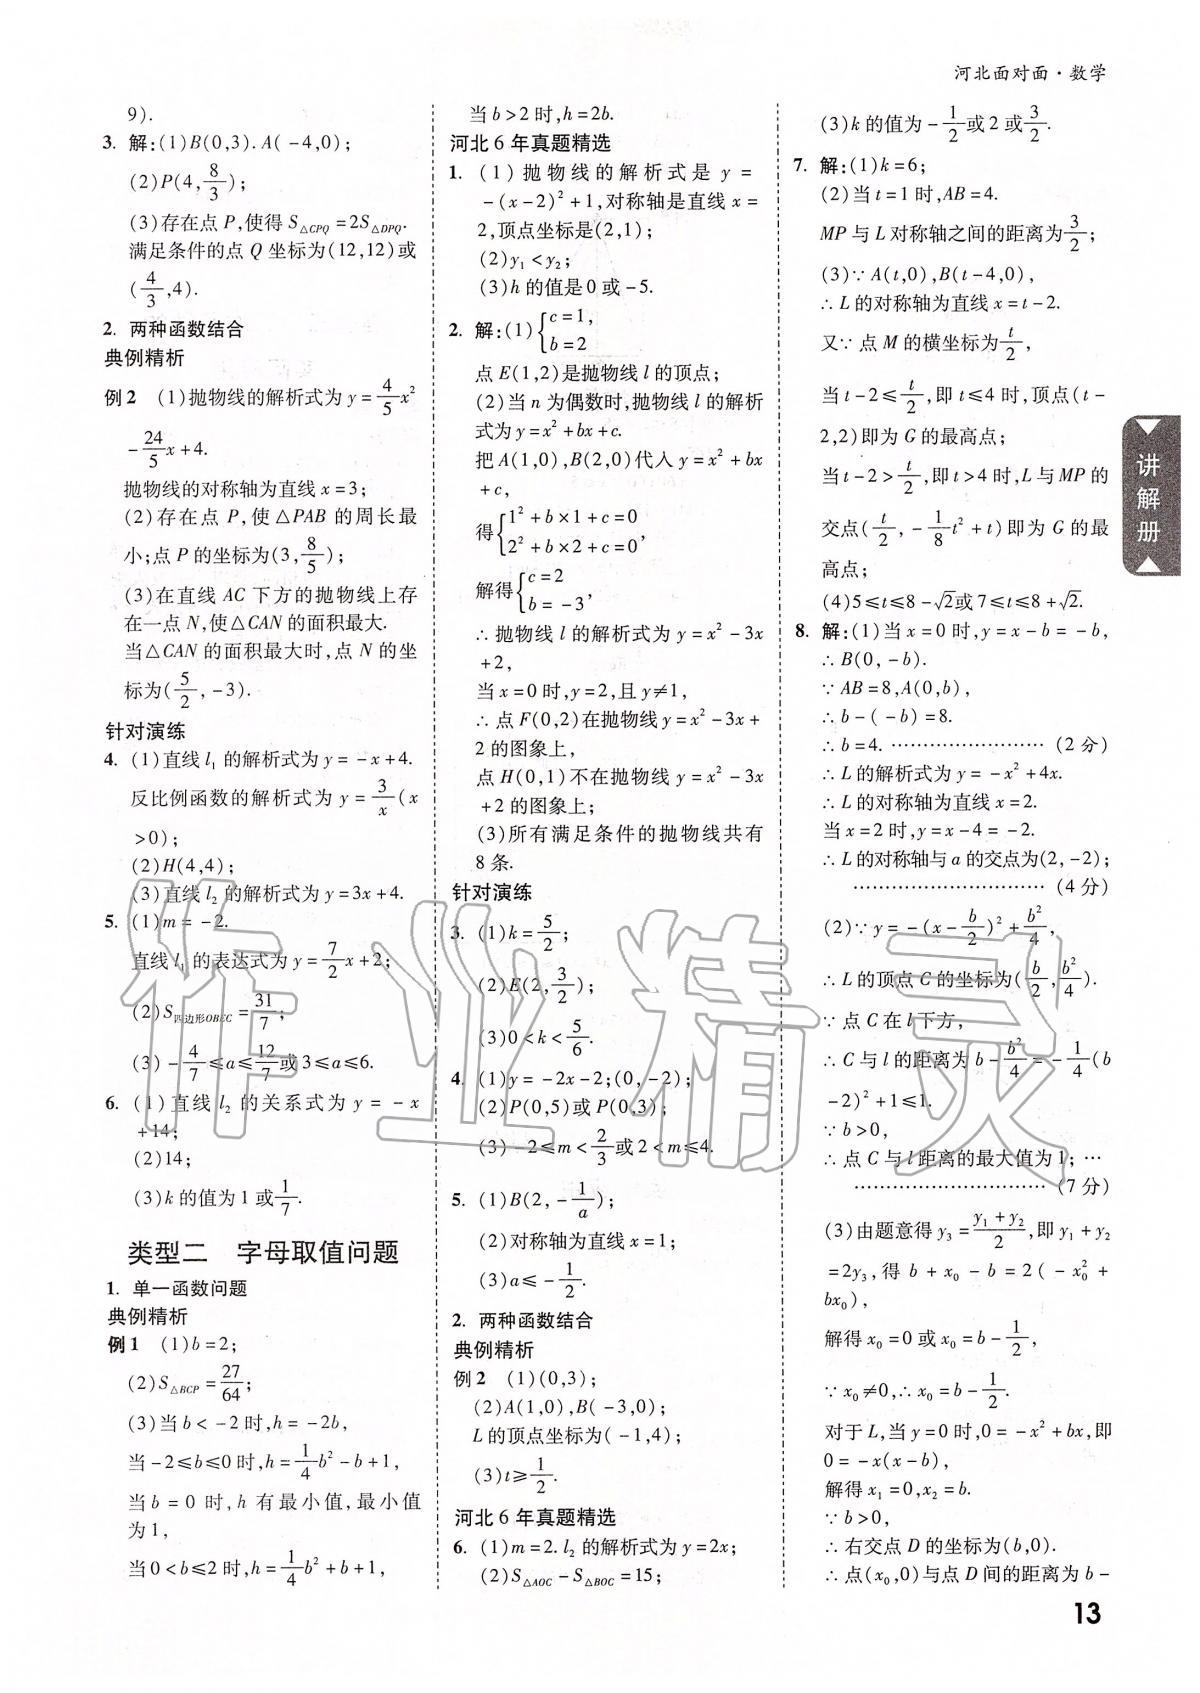 河北面对面·数学
9).
3. 解:(1)B(0,3). A(-4,0);
(2)P(4,8/3);
(3)存在点 P,使得 S△CPQ=2S△DPQ.
满足条件的点 Q 坐标为(12,12)或
(4/3,4).
2. 两种函数结合
典例精析
例2 (1)抛物线的解析式为 y=4/5x²
-24/5x+4.
抛物线的对称轴为直线 x=3;
(2)存在点 P,使△PAB 的周长最
小;点 P 的坐标为(3,8/5);
(3)在直线 AC 下方的抛物线上存
在一点 N,使△CAN 的面积最大.
当△CAN 的面积最大时,点 N 的坐
标为(5/2,-3).
针对演练
4. (1)直线 l₁ 的解析式为 y=-x+4.
反比例函数的解析式为 y=3/x(x
>0);
(2)H(4,4);
(3)直线 l₂ 的解析式为 y=3x+4.
5. (1)m=-2.
直线 l₁ 的表达式为 y=7/2x+2;
(2)S四边形OBEC=31/7;
(3)-4/7≤a≤12/7或 3≤a≤6.
6. (1)直线 l₂ 的关系式为 y=-x
+14;
(2)14;
(3)k 的值为 1 或1/7.
类型二 字母取值问题
1. 单一函数问题
典例精析
例1 (1)b=2;
(2)S△BCP=27/64;
(3)当 b<-2 时,h=-2b,
当-2≤b≤0 时,h=1/4b²-b+1,
当 b=0 时,h 有最小值,最小值
为 1,
当 0<b≤2 时,h=1/4b²+b+1,
当 b>2 时,h=2b.
河北 6 年真题精选
1. (1)抛物线的解析式是 y=
-(x-2)²+1,对称轴是直线 x=
2,顶点坐标是(2,1);
(2)y₁<y₂;
(3)h 的值是 0 或-5.
2. 解:(1){c=1, b=2
点 E(1,2)是抛物线 l 的顶点;
(2)当 n 为偶数时,抛物线 l 的解析
式为 y=x²+bx+c.
把 A(1,0),B(2,0)代入 y=x²+bx
+c,
得{1²+b×1+c=0 2²+b×2+c=0,
解得{c=2 b=-3,
∴抛物线 l 的解析式为 y=x²-3x
+2,
当 x=0 时,y=2,且 y≠1,
∴点 F(0,2)在抛物线 y=x²-3x+
2 的图象上,
点 H(0,1)不在抛物线 y=x²-3x
+2 的图象上;
(3)所有满足条件的抛物线共有
8 条.
针对演练
3. (1)k=5/2;
(2)E(2,3/2);
(3)0<k<5/6.
4. (1)y=-2x-2;(0,-2);
(2)P(0,5)或 P(0,3);
(3)-2≤m<2/3或 2<m≤4.
5. (1)B(2,-1/a);
(2)对称轴为直线 x=1;
(3)a≤-1/2.
2. 两种函数结合
典例精析
例2 (1)(0,3);
(2)A(1,0),B(-3,0);
L 的顶点坐标为(-1,4);
(3)t≥1/2.
河北 6 年真题精选
6. (1)m=2. l₂ 的解析式为 y=2x;
(2)S△AOC-S△BOC=15;
(3)k 的值为-1/2或 2 或3/2.
7. 解:(1)k=6;
(2)当 t=1 时,AB=4.
MP 与 L 对称轴之间的距离为3/2;
(3)∵A(t,0),B(t-4,0),
∴L 的对称轴为直线 x=t-2.
又∵点 M 的横坐标为t/2,
当 t-2≤t/2,即 t≤4 时,顶点(t-
2,2)即为 G 的最高点;
当 t-2>t/2,即 t>4 时,L 与 MP 的
交点(t/2,-1/8t²+t)即为 G 的最
高点;
(4)5≤t≤8-√2或 7≤t≤8+√2.
8. 解:(1)当 x=0 时,y=x-b=-b,
∴B(0,-b).
∵AB=8,A(0,b),
∴b-(-b)=8.
∴b=4. ……………………(2 分)
∴L 的解析式为 y=-x²+4x.
∴L 的对称轴为直线 x=2.
当 x=2 时,y=x-4=-2.
∴L 的对称轴与 a 的交点为(2,-2);
……………………(4 分)
(2)∵y=-(x-b/2)²+b²/4,
∴L 的顶点 C 的坐标为(b/2,b²/4).
∵点 C 在 l 下方,
∴C 与 l 的距离为 b-b²/4=-1/4(b
-2)²+1≤1.
∵b>0,
∴点 C 与 l 距离的最大值为 1;…
……………………(7 分)
(3)由题意得 y₃=(y₁+y₂)/2,即 y₁+y₂
=2y₃,得 b+x₀-b=2(-x₀²+
bx₀),
解得 x₀=0 或 x₀=b-1/2,
∵x₀≠0,∴x₀=b-1/2.
对于 L,当 y=0 时,0=-x²+bx,即
0=-x(x-b),
解得 x₁=0,x₂=b.
∵b>0,
∴右交点 D 的坐标为(b,0).
∴点(x₀,0)与点 D 间的距离为 b-
讲解册
13
作业精灵